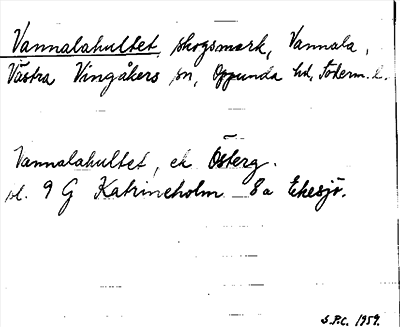 Vannalahultet, skogsmark, Vannala,
Västra Vingåkers sn, Oppunda hd, Söderm. l.
Vannalahultet, ek Österg.
bl. 9 G Katrineholm 8a Ekesjö.
S.P.C. 1959.